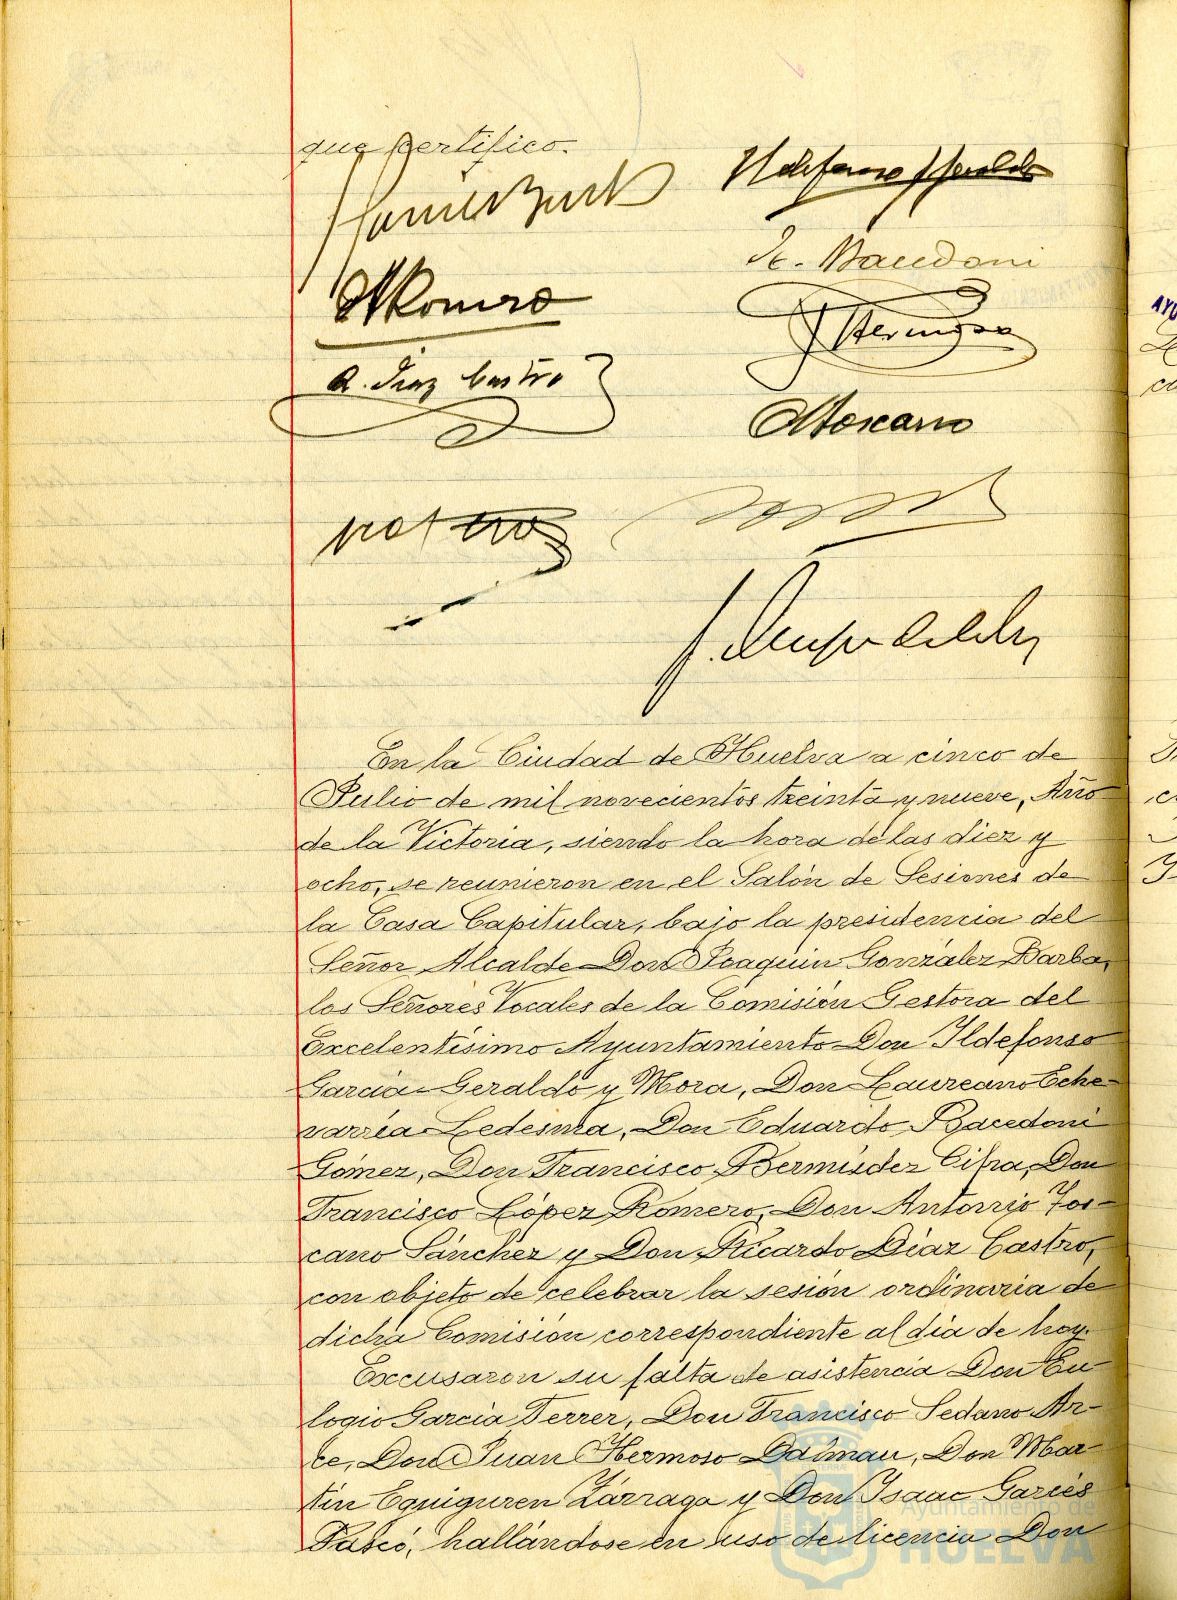 que certifico.
Ildefonso G Geraldo
E. Bacedoni
F Romero
J Hermoso
R. Díaz Castro
A Toscano
En la Ciudad de Huelva a cinco de
Julio de mil novecientos treinta y nueve, Año
de la Victoria, siendo la hora de las diez y
ocho, se reunieron en el Salón de Sesiones de
la Casa Capitular, bajo la presidencia del
Señor Alcalde Don Joaquin González Barba,
los Señores Vocales de la Comisión Gestora del
Excelentísimo Ayuntamiento Don Ildefonso
Garcia-Geraldo y Mora, Don Laureano Eche-
varría Ledesma, Don Eduardo Bacedoni
Gómez, Don Francisco Bermúdez Cifra, Don
Francisco López Romero, Don Antonio Tos-
cano Sánchez y Don Ricardo Díaz Castro,
con objeto de celebrar la sesión ordinaria de
dicha Comisión correspondiente al día de hoy.
Excusaron su falta de asistencia Don Eu-
logio García Ferrer, Don Francisco Sedano Ar-
ce, Don Juan Hermoso Dalmau, Don Mar-
tín Eguiguren Zárraga y Don Isaac Garcés
hallándose en uso de licencia Don
Ayuntamiento de
HUELVA